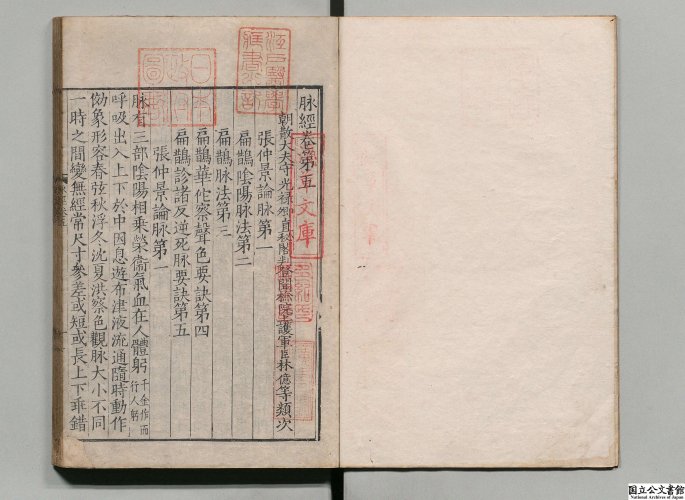 脉經卷第五
朝散大夫守光祿卿直秘閣判登聞檢院上護軍臣林億等類次
張仲景論脉第一
扁鵲陰陽脉法第二
扁鵲脉法第三
扁鵲華佗察聲色要訣第四
扁鵲診諸反逆死脉要訣第五
張仲景論脉第一
脉有三部陰陽相乘榮衛氣血在人體躬千金作而行人躬
呼吸出入上下於中因息遊布津液流通隨時動作
効象形容春弦秋浮冬沈夏洪察色觀脉大小不同
一時之間變無經常尺寸參差或短或長上下乖錯
江戸醫學
日本政府圖書
文庫
国立公文書館
National Archives of Japan